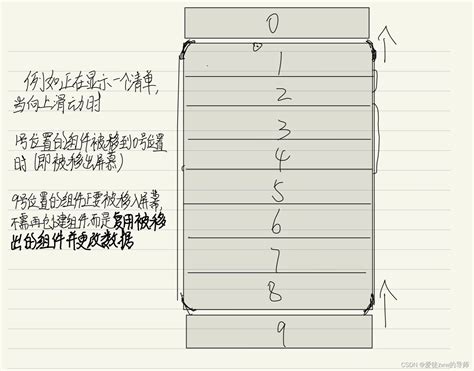 0
例如正在显示一个清单,
当向上滑动时
1号位置的组件被移到0号位置
时(即被移出屏幕)
9号位置的组件正要被移入屏幕,
不需再创建组件而是复用被移
出的组件并更改数据
1
2
3
4
5
6
7
8
9
CSDN @爱徒zwej的导师